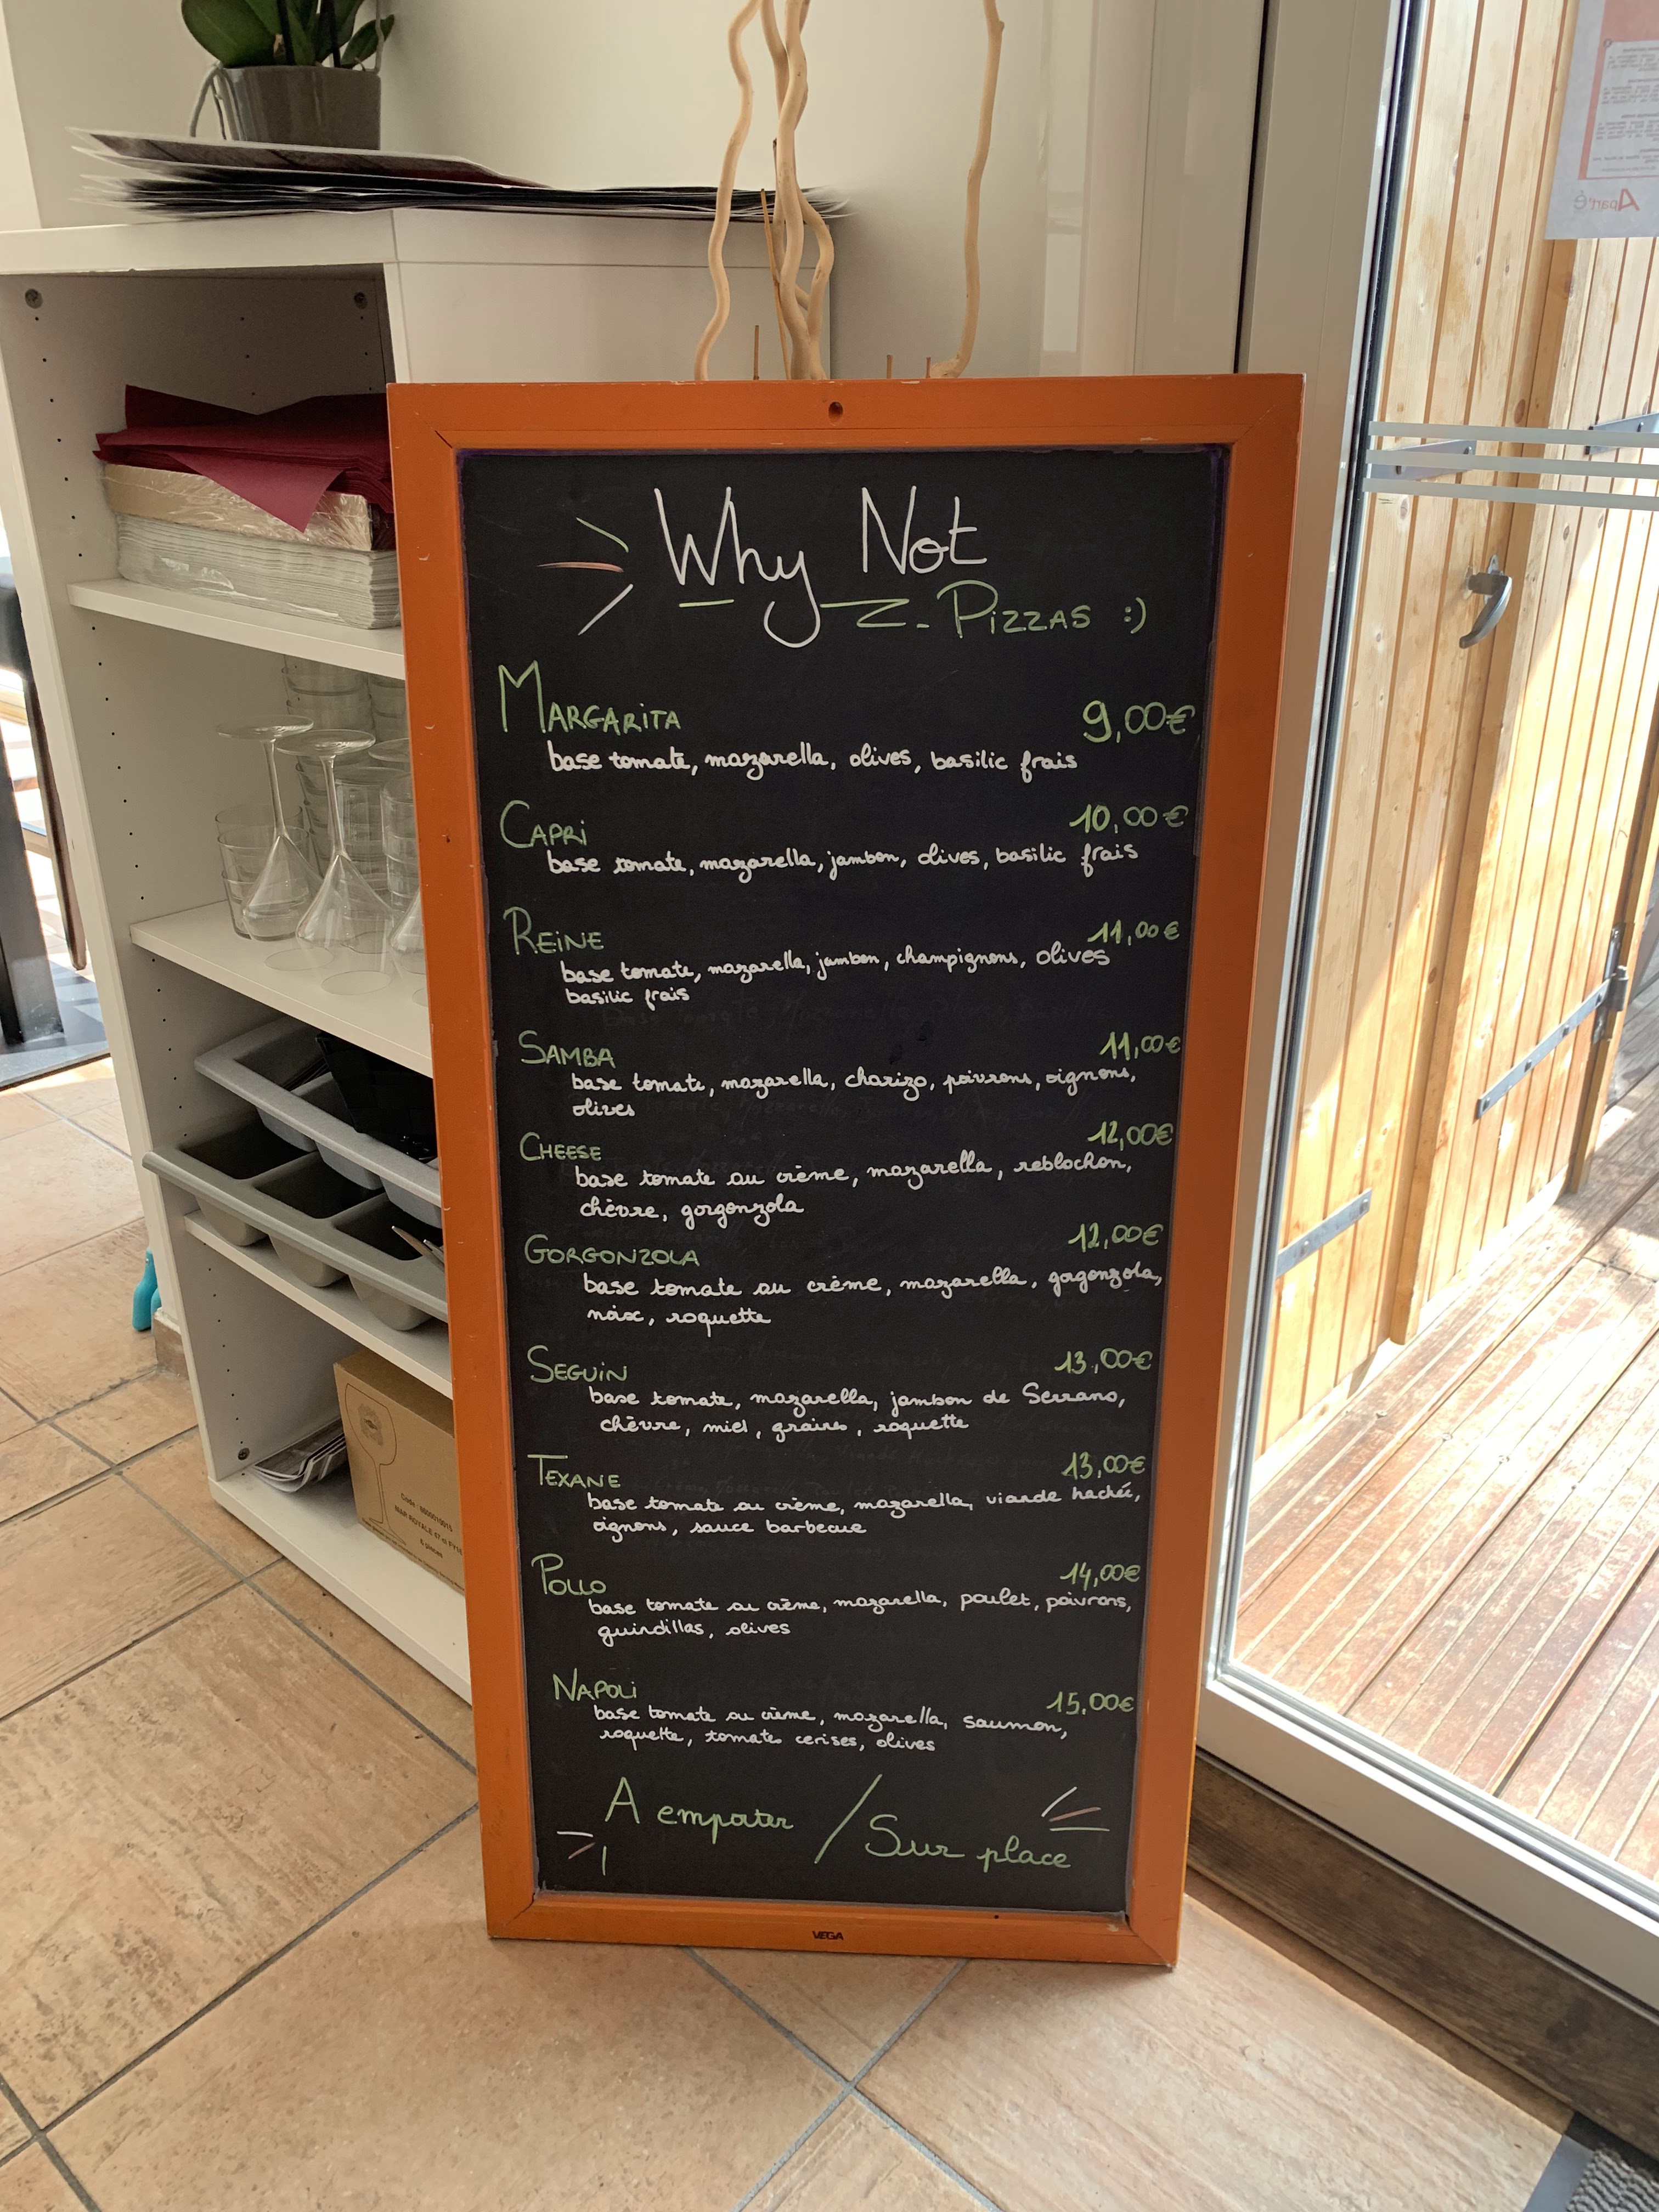 Why Not
Pizzas :)
MARGARITA 9,00€
base tomate, mozarella, olives, basilic frais
CAPRI 10,00€
base tomate, mozarella, jambon, olives, basilic frais
REINE 11,00€
base tomate, mozarella, jambon, champignons, olives
basilic frais
SAMBA 11,00€
base tomate, mozarella, chorizo, poivrons, oignons,
olives
CHEESE 12,00€
base tomate ou crème, mozarella, reblochon,
chèvre, gorgonzola
GORGONZOLA 12,00€
base tomate ou crème, mozarella, gorgonzola,
noix, roquette
SEGUIN 13,00€
base tomate, mozarella, jambon de Serrano,
chèvre, miel, graines, roquette
TEXANE 13,00€
base tomate ou crème, mozarella, viande hachée,
oignons, sauce barbecue
POLLO 14,00€
base tomate ou crème, mozarella, poulet, poivrons,
guindillas, olives
NAPOLI 15,00€
base tomate ou crème, mozarella, saumon,
roquette, tomates cerises, olives
A emporter / Sur place
VEGA
Apart'é
6 pièces